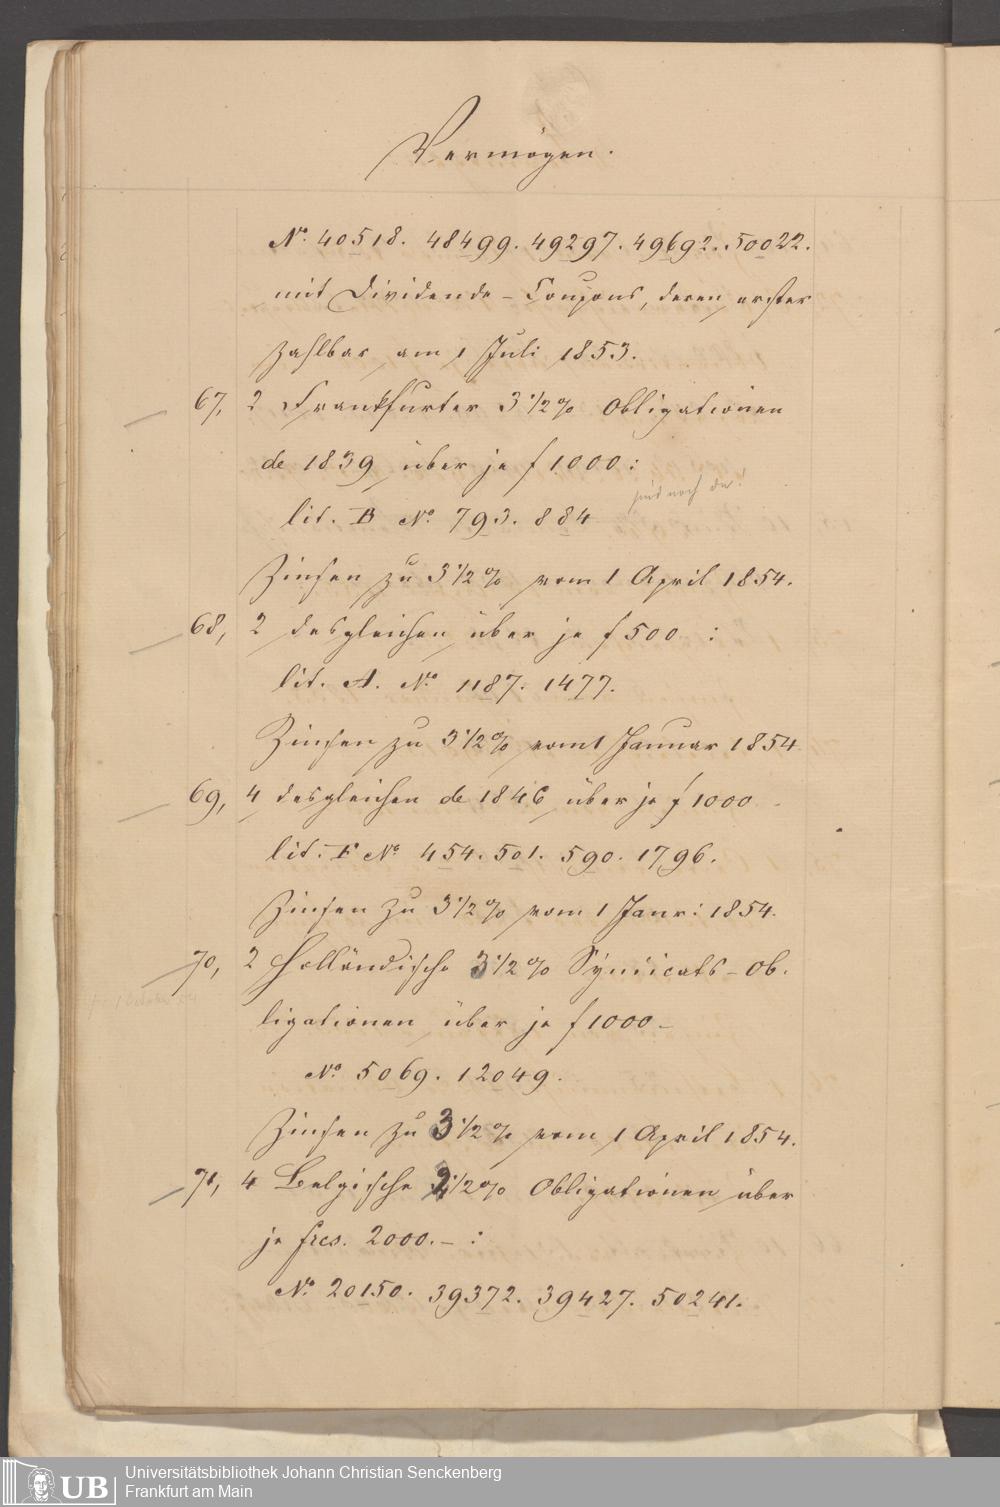 Vermögen.
No. 40518. 48499. 49297. 49692. 50022.
mit Dividende-Coupons, deren erster
zahlbar am 1 Juli 1853.
67, 2 Frankfurter 3 1/2 % Obligationen
de 1839 über je f 1000 :
sind noch da!
lit. B No. 793. 884
Zinsen zu 3 1/2 % vom 1 April 1854.
68, 2 desgleichen über je f 500 :
lit. A. No. 1187. 1477.
Zinsen zu 3 1/2 % vom 1 Januar 1854
69, 4 desgleichen de 1846 über je f 1000 -
lit. F No. 454. 501. 590. 1796.
Zinsen zu 3 1/2 % vom 1 Janr: 1854.
70, 2 Holländische 3 1/2 % Syndicats-Ob-
ligationen über je f 1000 -
No. 5069. 12049.
Zinsen zu 3 1/2 % vom 1 April 1854.
71, 4 Belgische 1/2 % Obligationen über
je frcs. 2000. - :
No. 20150. 39372. 39427. 50241.
UB Universitätsbibliothek Johann Christian Senckenberg
Frankfurt am Main